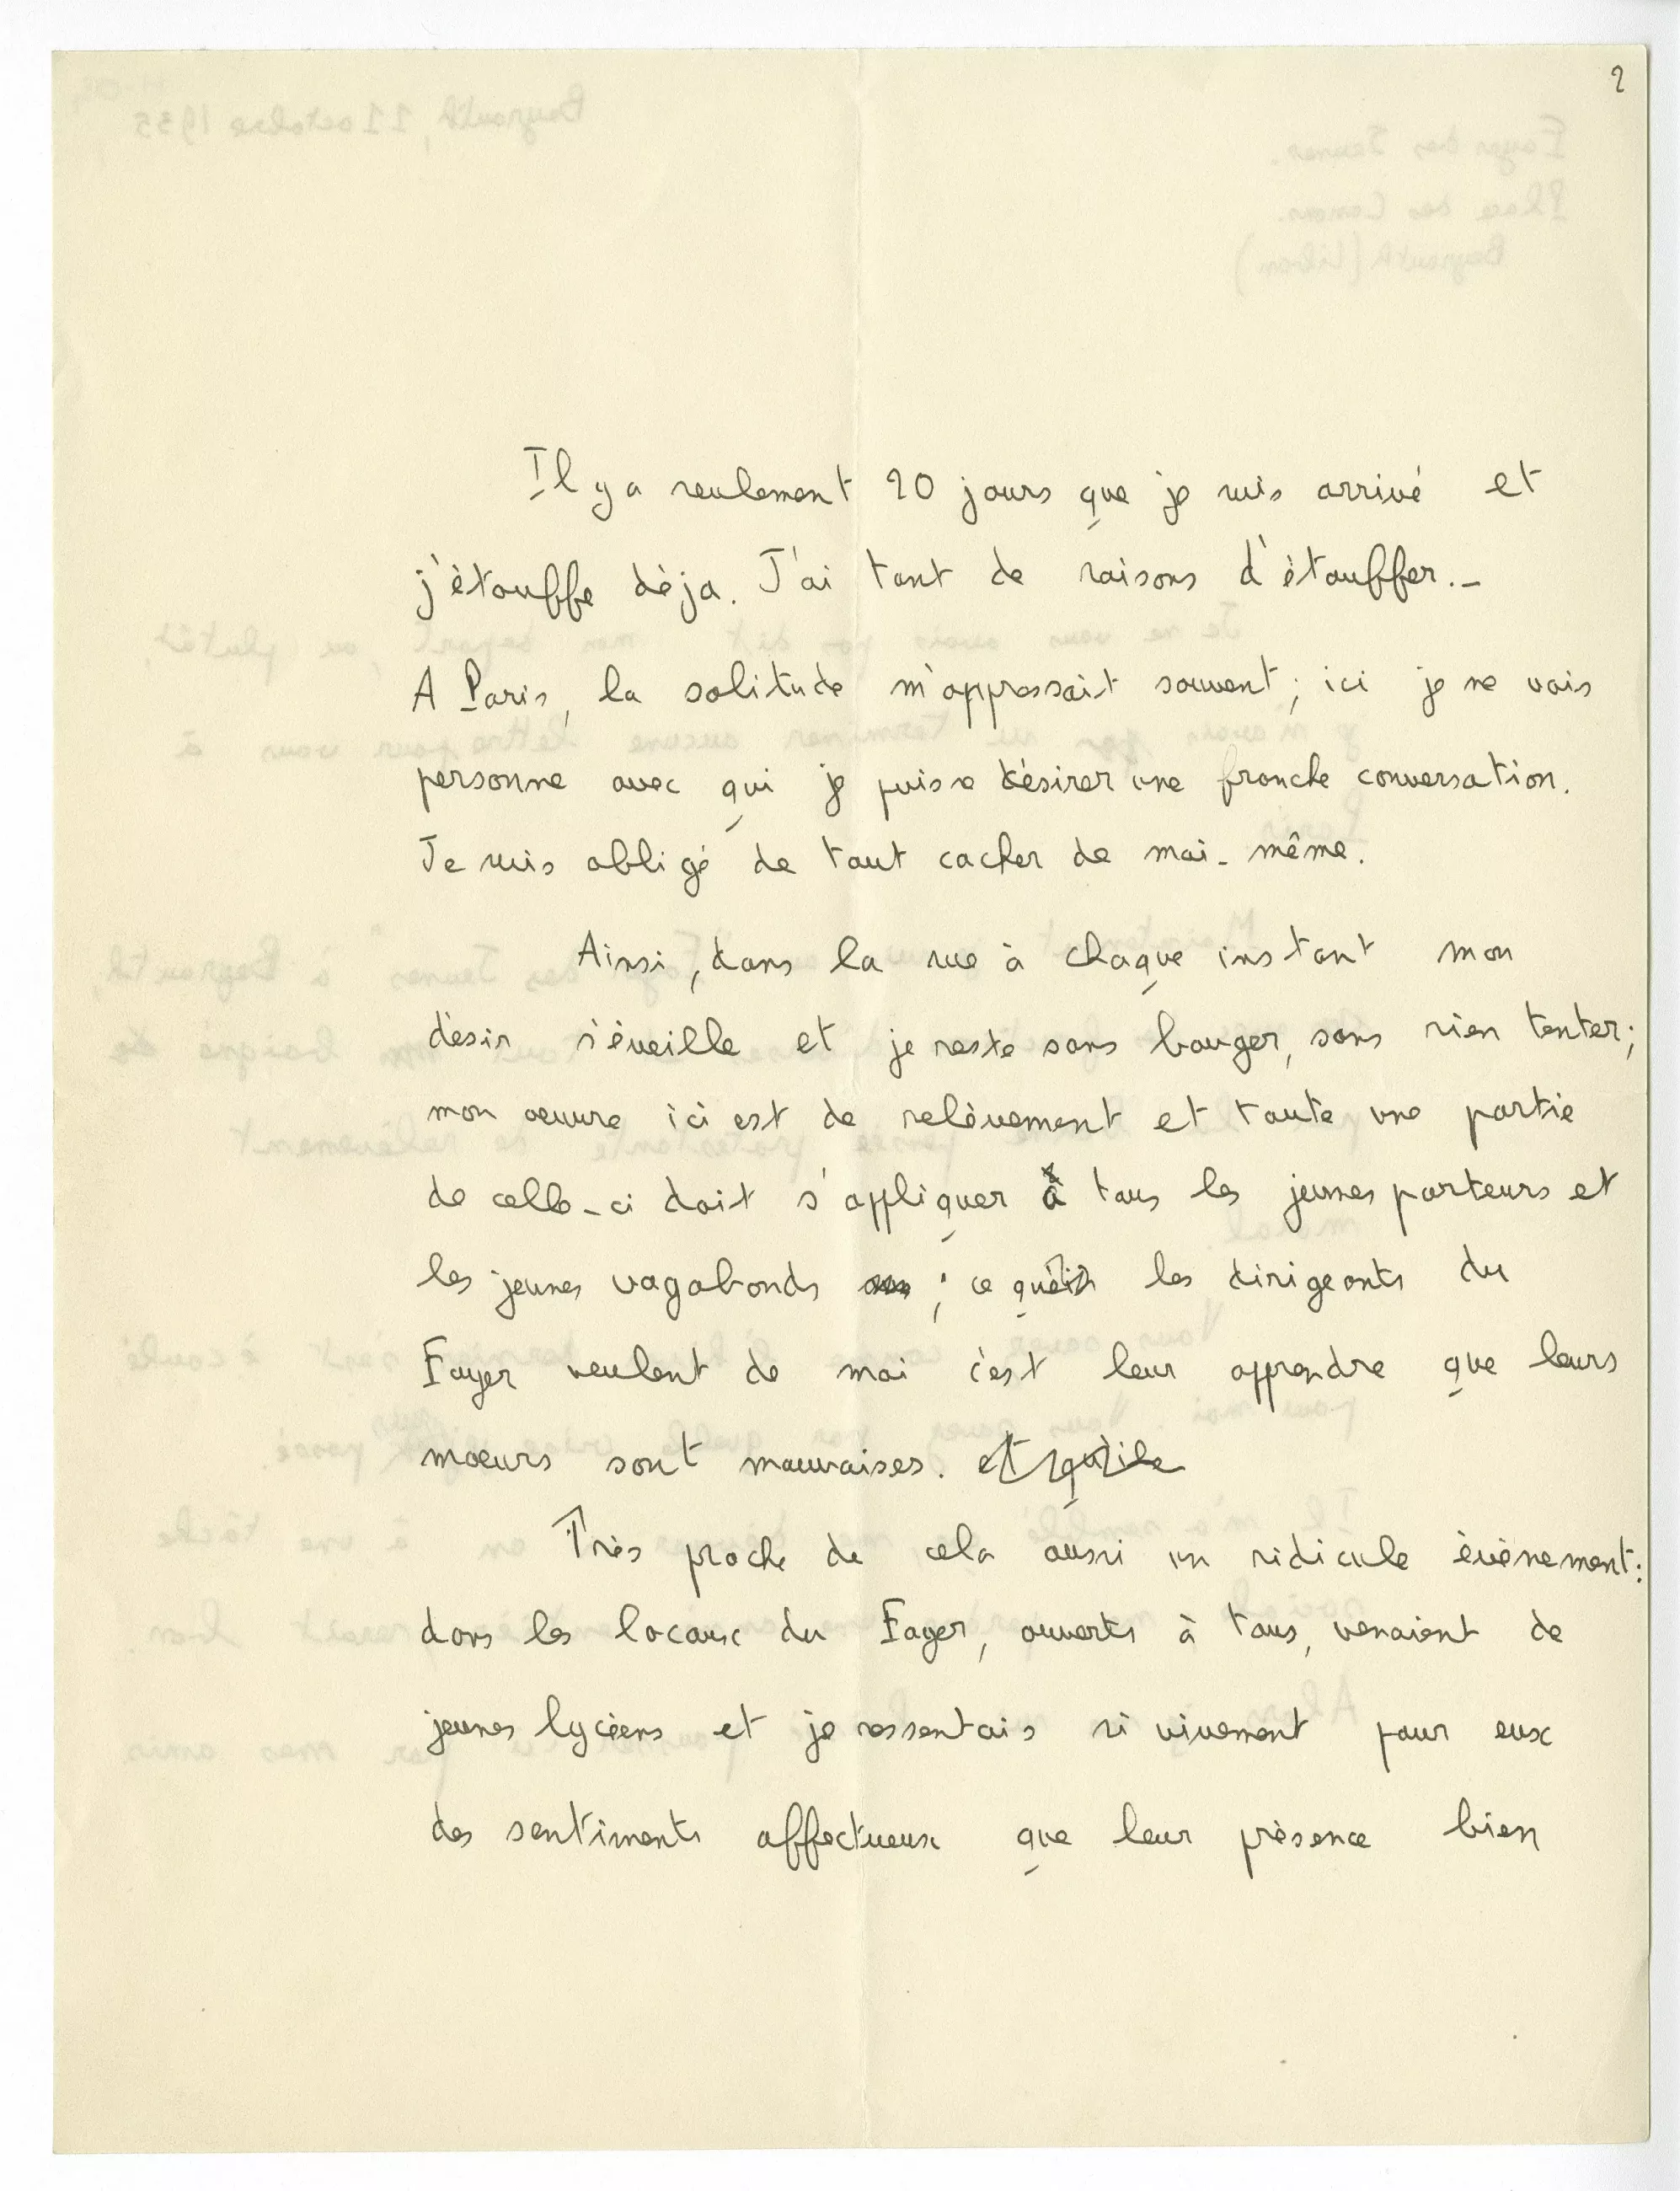 2
Il y a seulement 20 jours que je suis arrivé et
j'étouffe déja. J'ai tant de raisons d'étouffer.-
A Paris, la solitude m'oppressait souvent; ici je ne vois
personne avec qui je puisse désirer une franche conversation.
Je suis obligé de tout cacher de moi-même.
Ainsi, dans la rue à chaque instant mon
désir s'éveille et je reste sans bouger, sans rien tenter;
mon oeuvre ici est de relèvement et toute une partie
de celle-ci doit s'appliquer à tous les jeunes porteurs et
les jeunes vagabonds ; ce que les dirigeants du
Foyer veulent de moi c'est leur apprendre que leurs
moeurs sont mauvaises. et qu'ils
Très proche de cela aussi un ridicule évènement:
dans les locaux du Foyer, ouverts à tous, venaient de
jeunes lycéens et je ressentais si vivement pour eux
des sentiments affectueux que leur présence bien